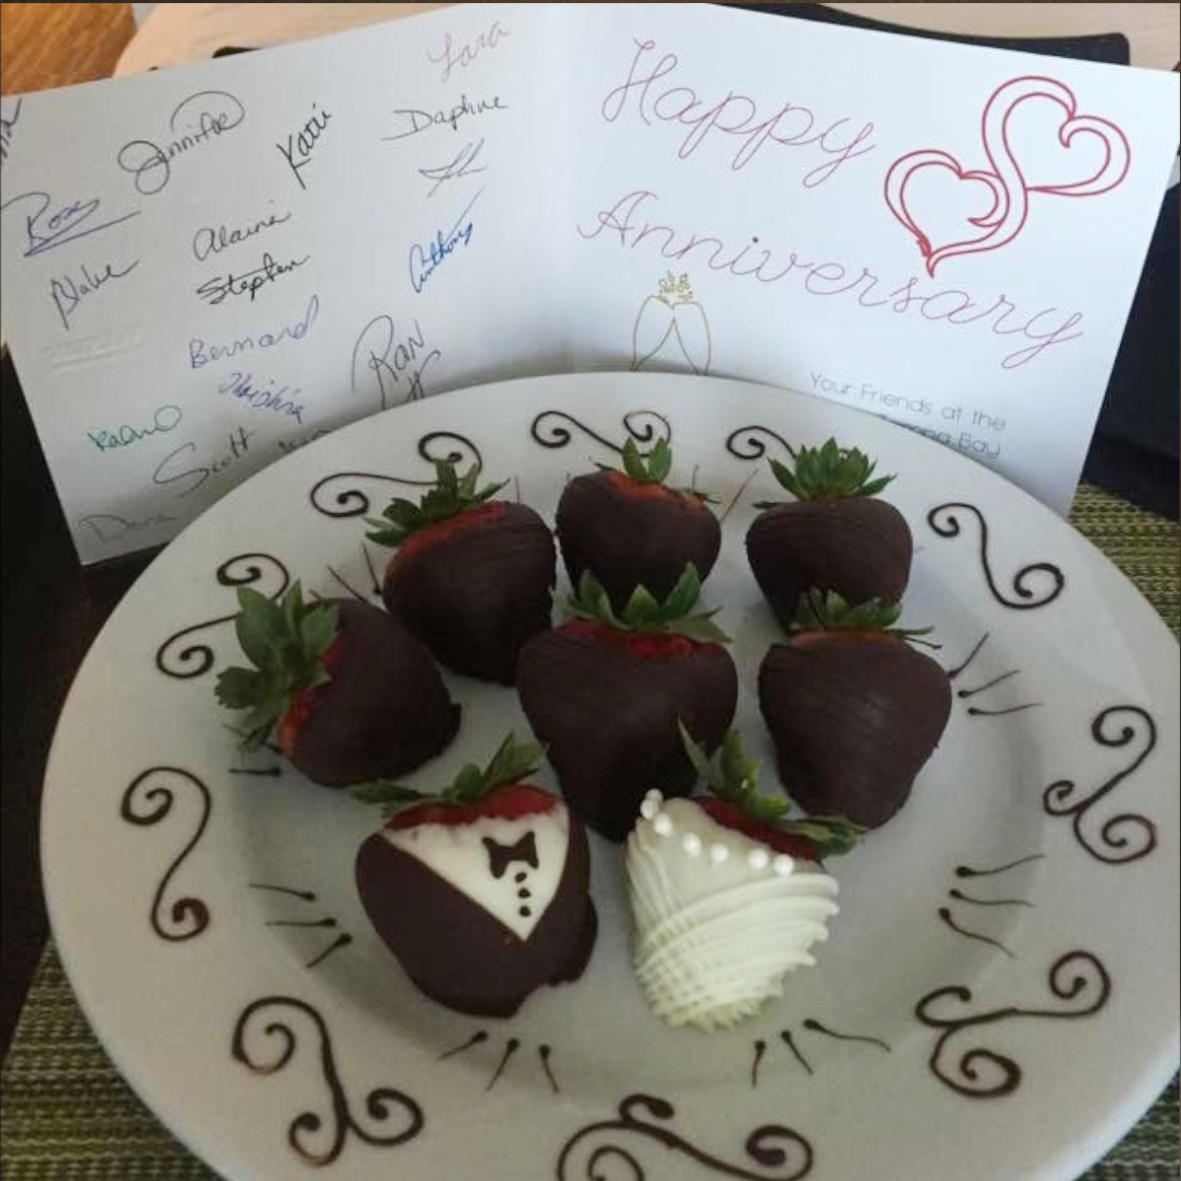 Lara
Jennifer
Katie
Daphne
Rose
Alaina
Blake
Stephen
Anthony
Bernard
Ray
Scott
Dana
Happy
Anniversary
Your Friends at the
Bay